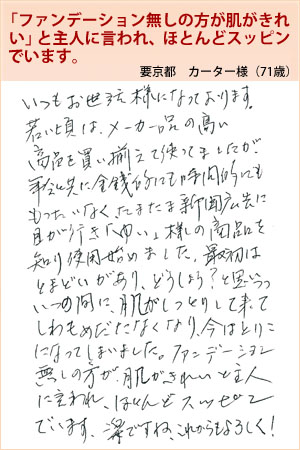 「ファンデーション無しの方が肌がきれ
い」と主人に言われ、ほとんどスッピン
でいます。
要京都　カーター様（71歳）
いつもお世話様になっております。
若い頃は、メーカー品の高い
商品を買い揃えて使ってましたが、
年と共に金銭的にも時間的にも
もったいなく、たまたま新聞広告に
目が行き「ゆい」様の商品を
知り使用始めました。最初は
とまどいがあり、どうしよう?と思いつつ
いつの間に、肌がしっとりして来て
しわもめだたなくなり、今はとりこ
になってしまいました。ファンデーション
無しの方が、肌がきれいと主人
に言われ、ほとんどスッピン
でいます。
ですね、これからもよろしく!